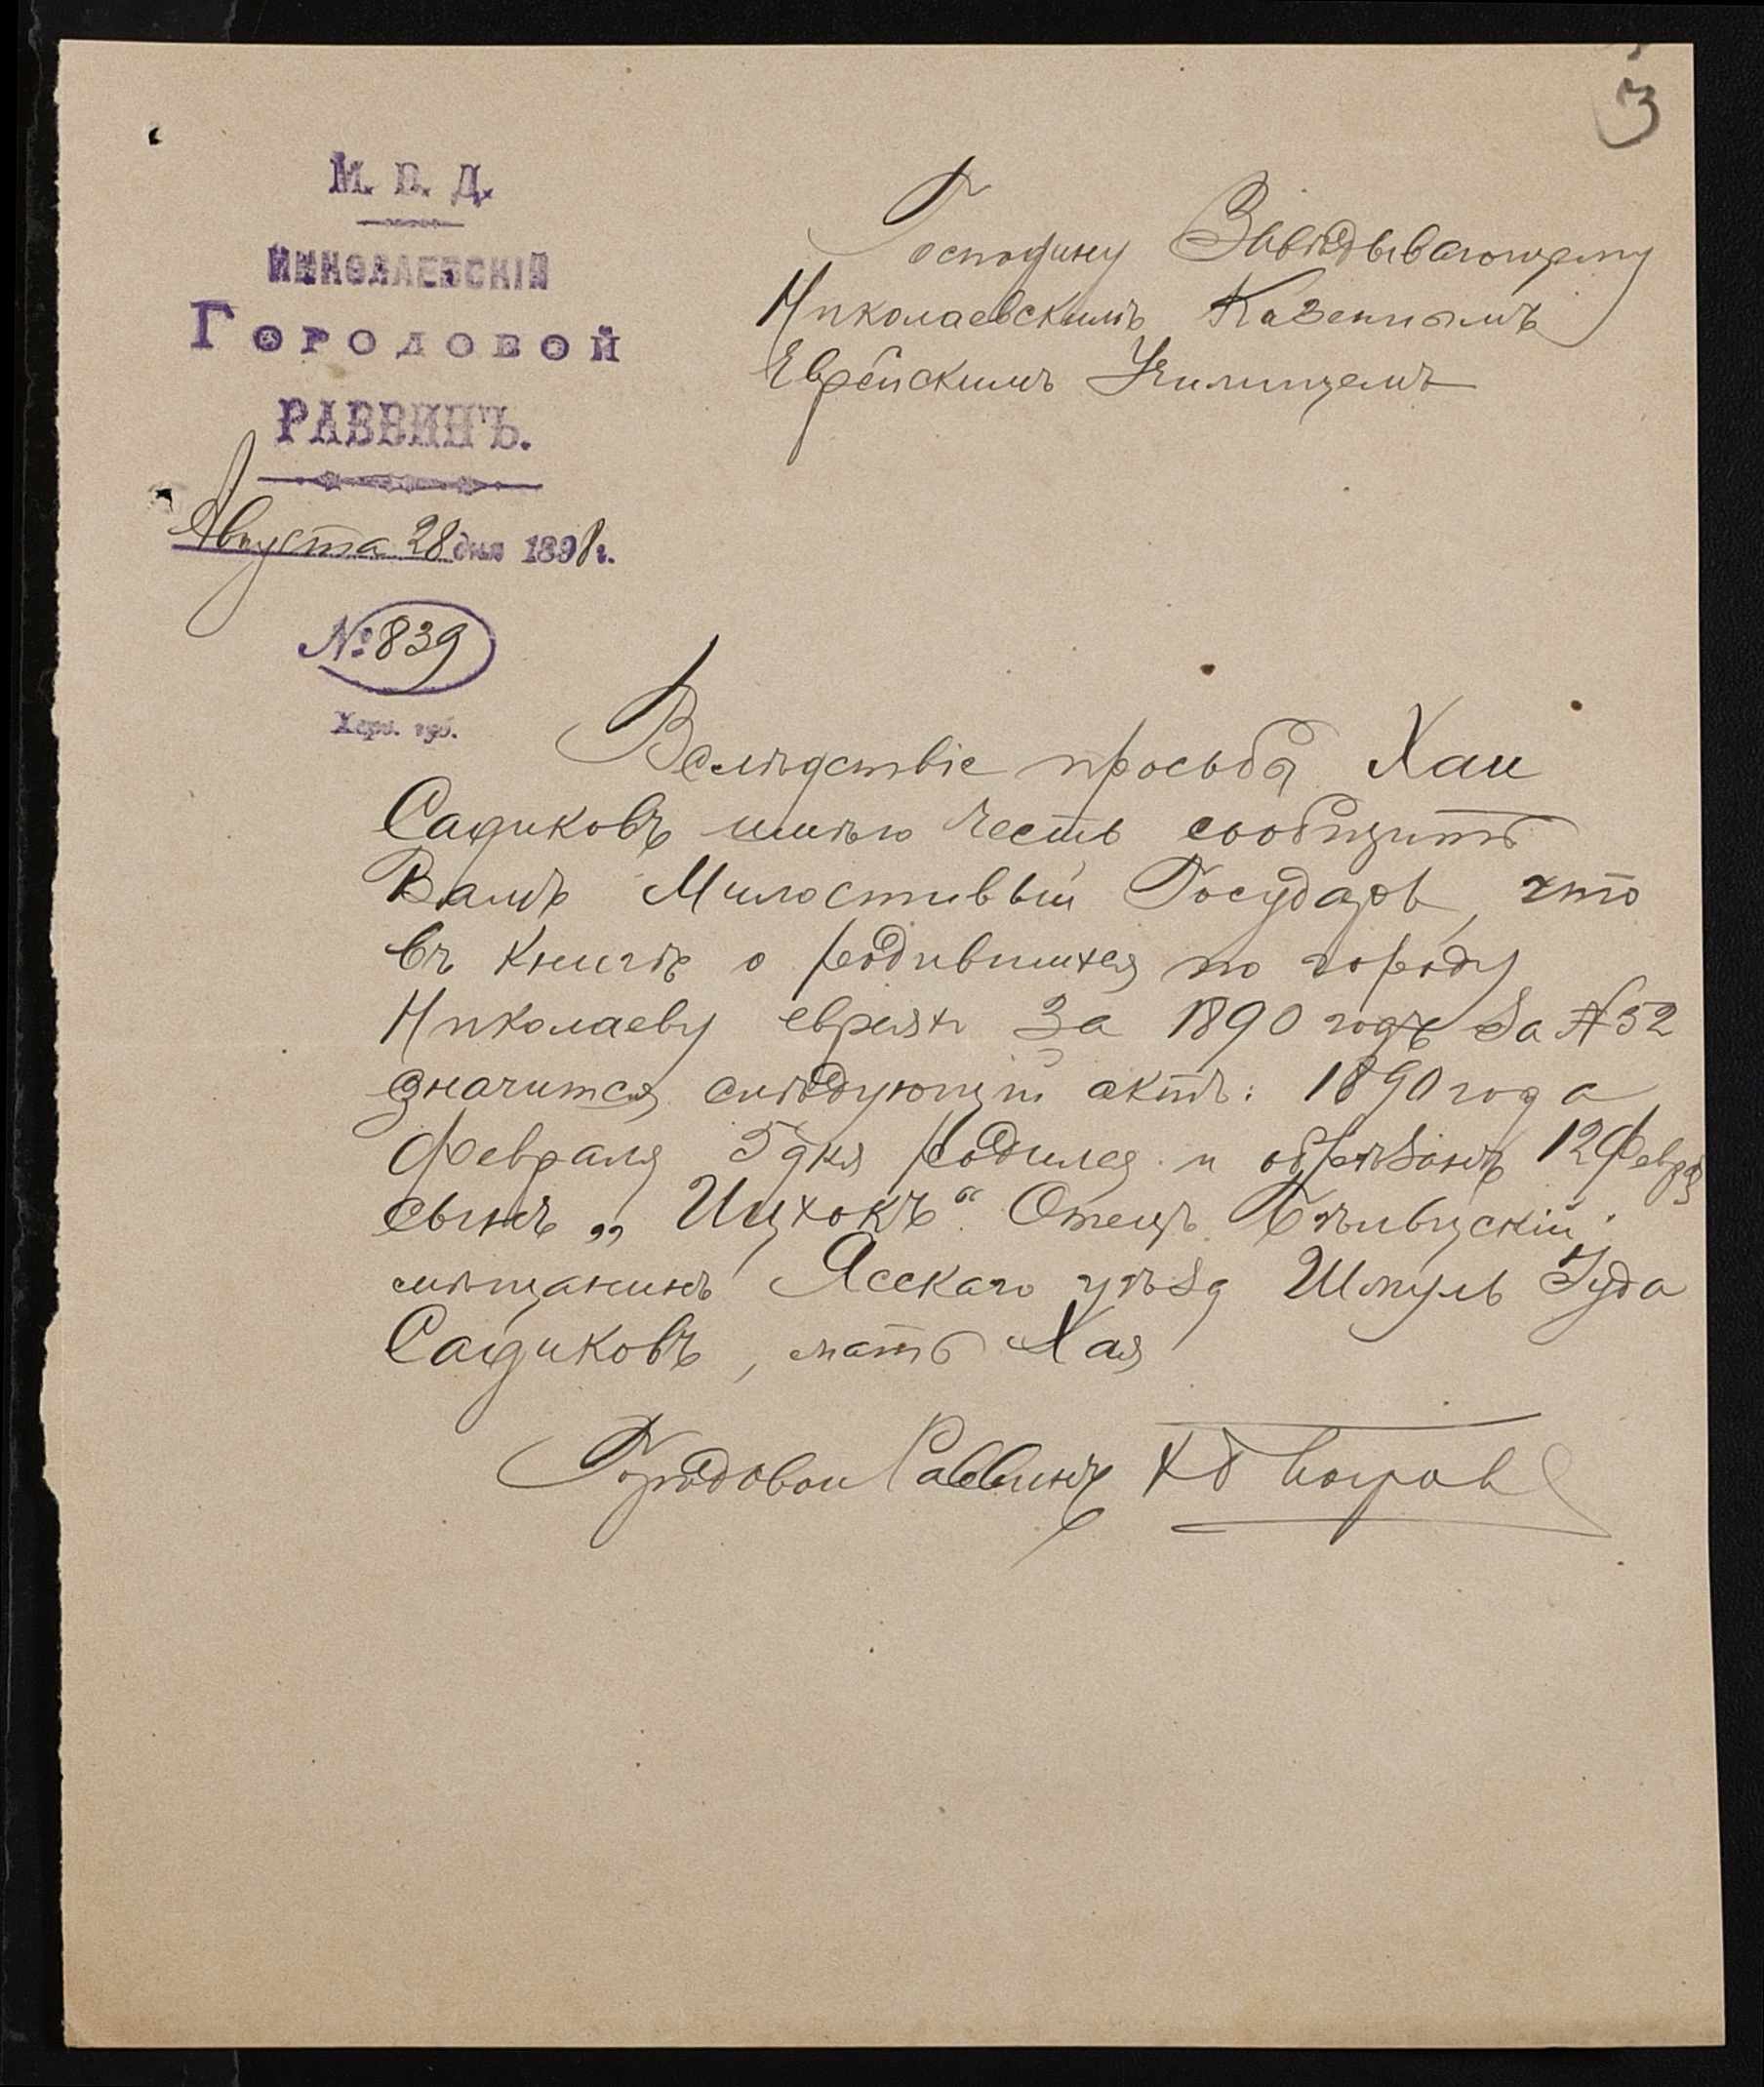 3
М. В. Д.
НИКОЛАЕВСКІЙ
Городовой
РАВВИНЪ.
Августа 28 дня 1898 г.
№ 839
Херс. губ.
Господину Завѣдывающему
Николаевскимъ Казеннымъ
Еврейскимъ Училищемъ
Вслѣдствіе просьбы Хаи
Садиковъ имѣю честь сообщить
Вамъ Милостивый Государь, что
въ книгѣ о родившихся по городу
Николаеву евреяхъ за 1890 годъ за № 52
значится слѣдующій актъ: 1890 года
Февраля 5 дня родился и обрѣзанъ 12 Февраля
сынъ „Ицхокъ“. Отецъ
мѣщанинъ Ясскаго уѣзд Шмуль Іуда
Садиковъ, мать Хая
Городовой Раввинъ